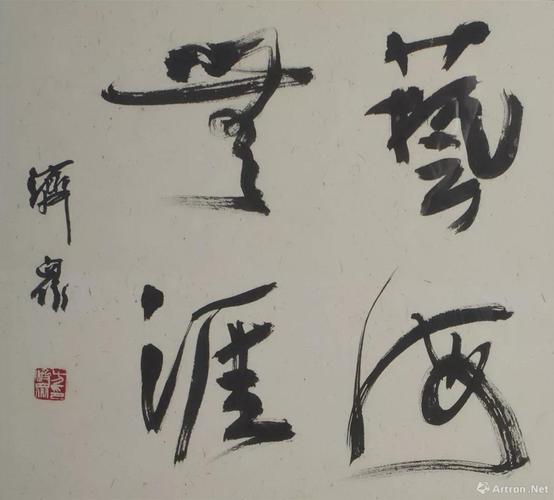 藝海
無涯
濟眾
Artron.Net